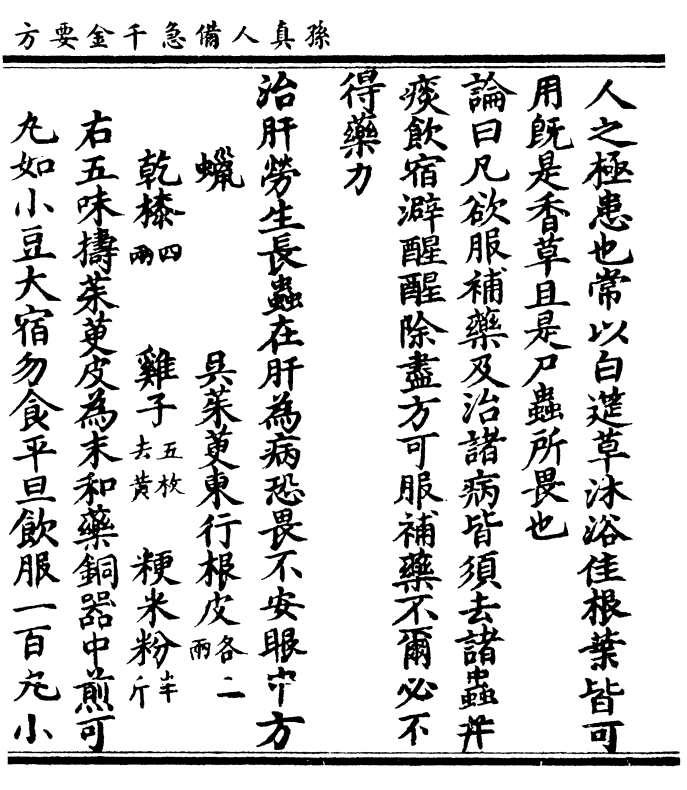 孫真人備急千金要方
人之極患也常以白蓗草沐浴佳根葉皆可
用既是香草且是尸蟲所畏也
論曰凡欲服補藥及治諸病皆須去諸蟲并
痰飲宿澼醒醒除盡方可服補藥不爾必不
得藥力
治肝勞生長蟲在肝為病恐畏不安眼中方
蠟 吳茱萸東行根皮各二兩
乾㯃四兩 雞子五枚去黃 粳米粉半斤
右五味擣茱萸皮為末和藥銅器中煎可
丸如小豆大宿勿食平旦飲服一百丸小